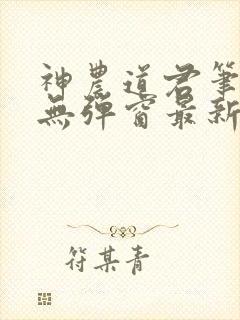 神農道君筆
無彈窗最新
符某青